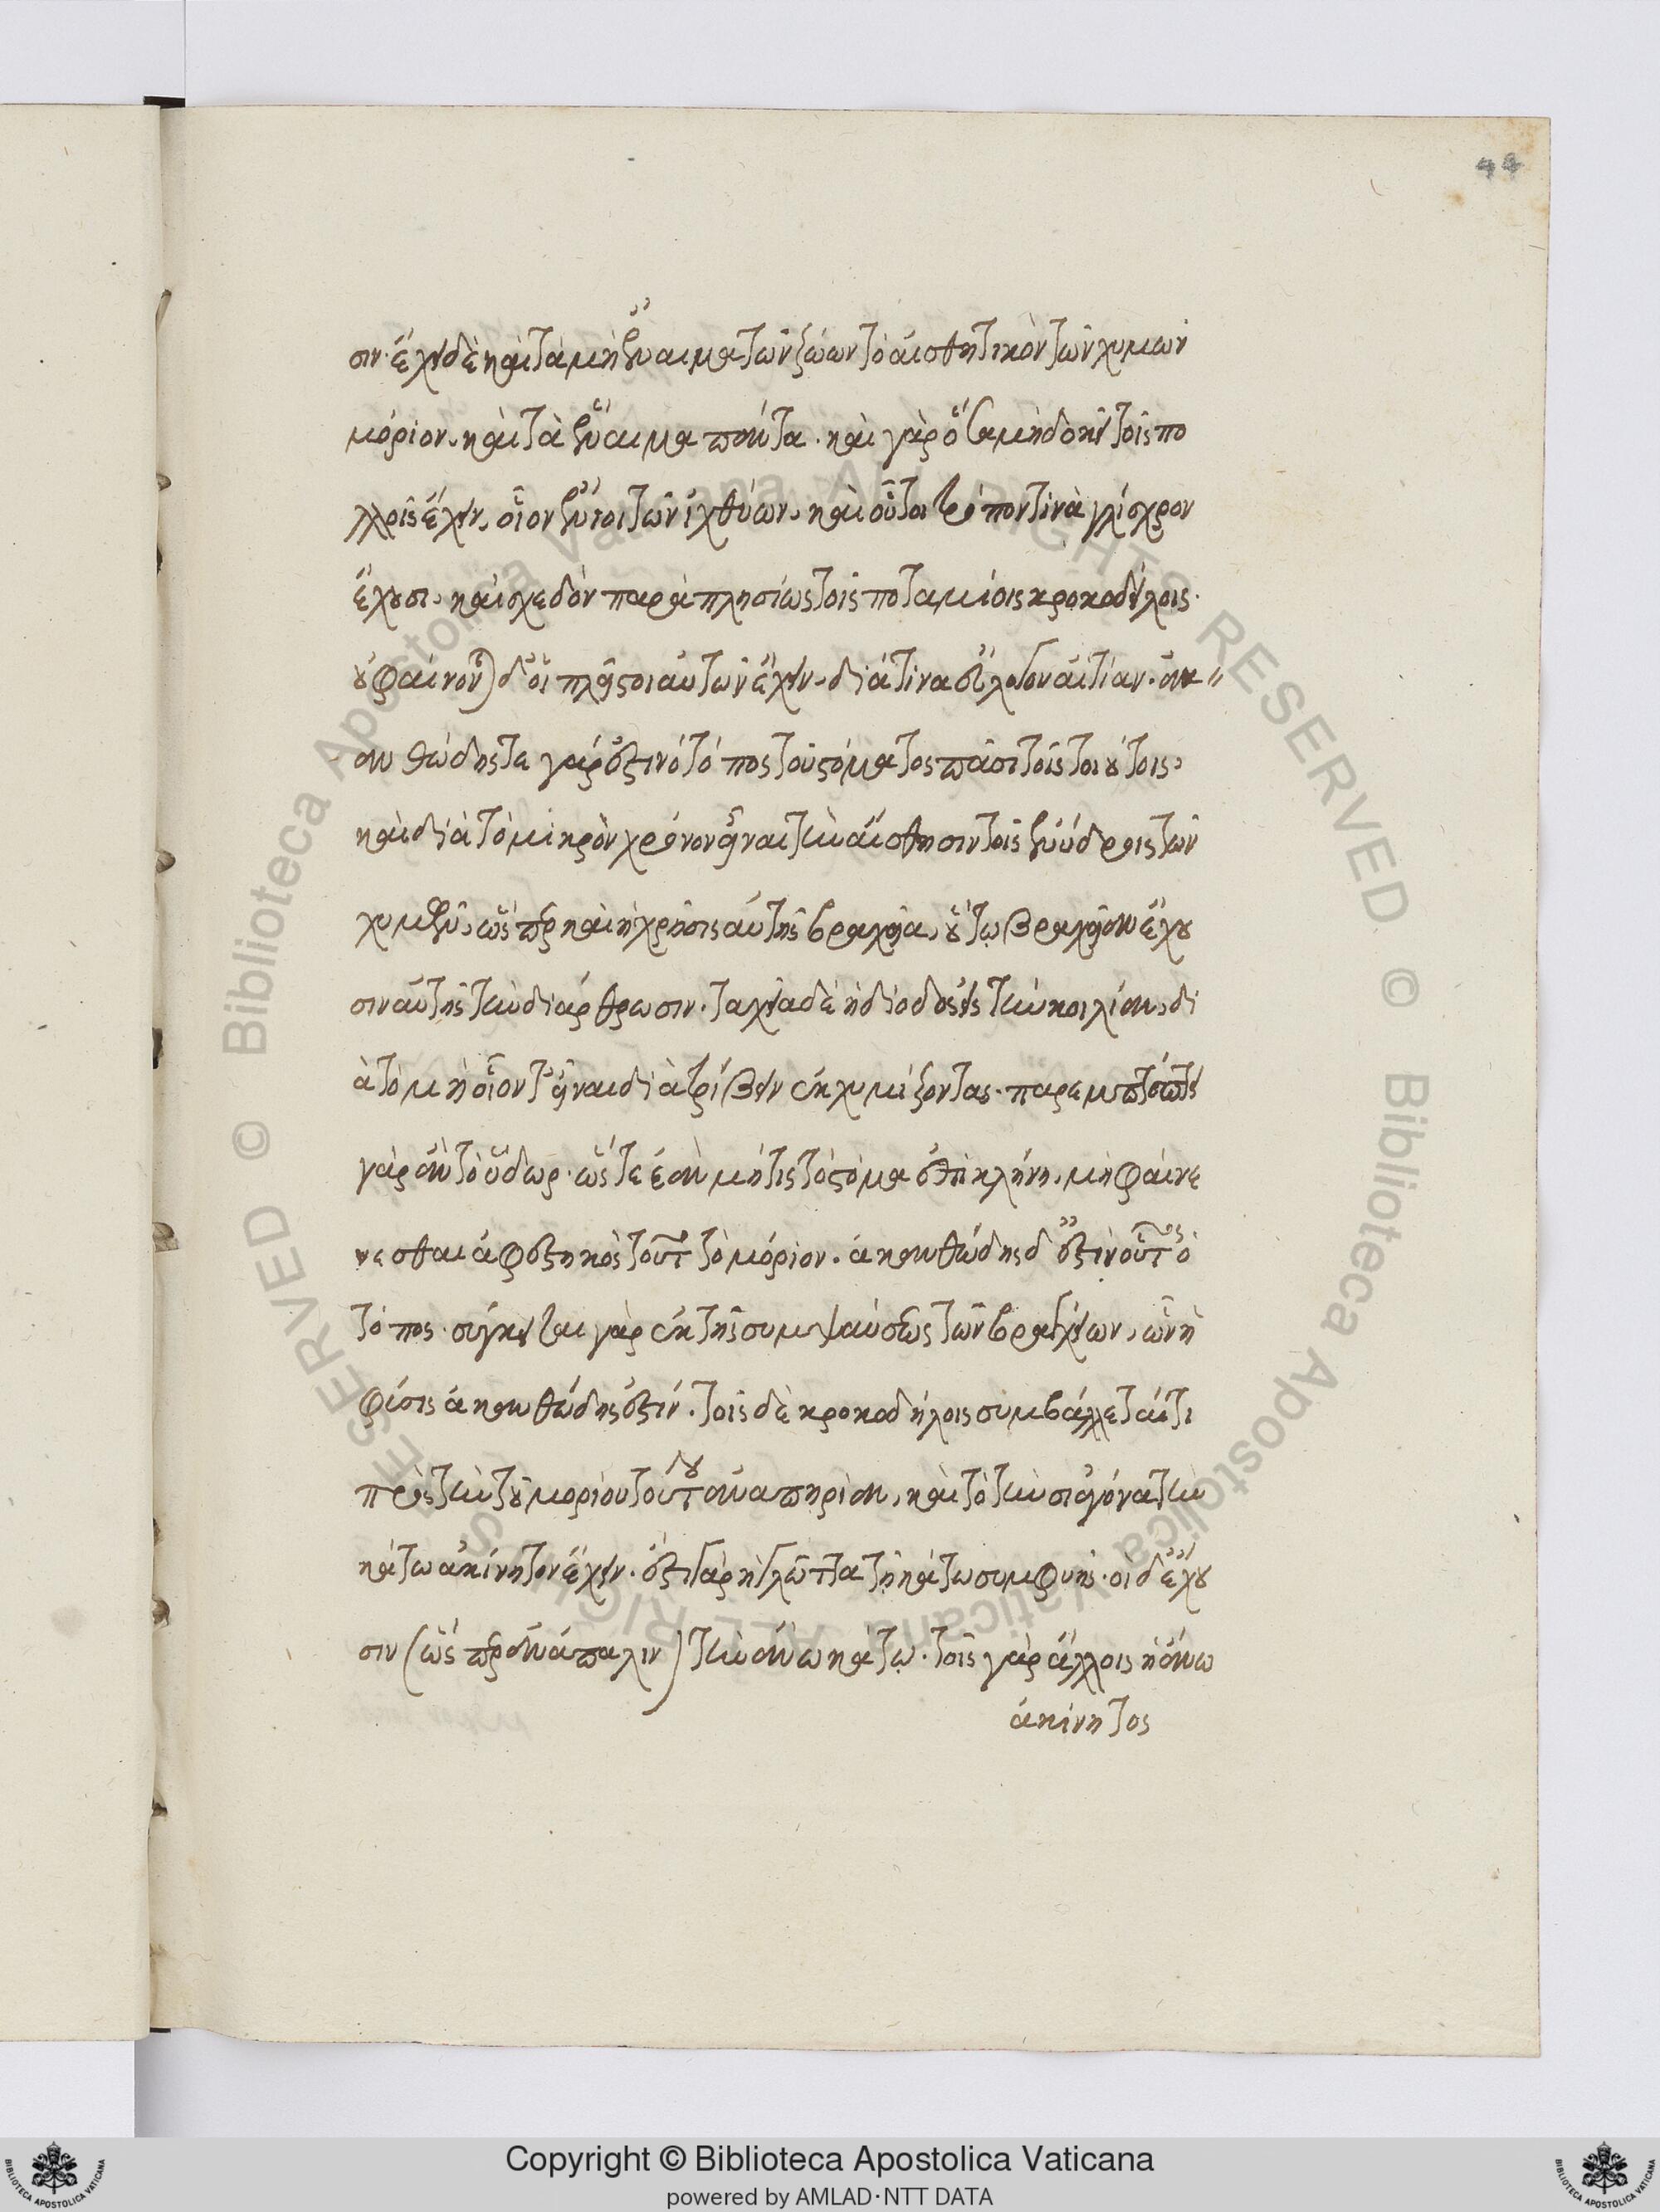 44
σιν· ἔχει δὲ καὶ τὰ μὴ ἔναιμα τῶν ζώων τὸ αἰσθητικὸν τῶν χυμῶν
μόριον, καὶ τὰ ἔναιμα πάντα· καὶ γὰρ ὅσα μὴ δοκεῖ τοῖς πο
λλοῖς ἔχειν, οἷον ἔνιοι τῶν ἰχθύων, καὶ οὗτοι τρόπον τινὰ γλίσχρον
ἔχουσι, καὶ σχεδὸν παραπλησίως τοῖς ποταμίοις κροκοδείλοις·
οὐ φαίνονται δ' οἱ πλεῖστοι αὐτῶν ἔχειν, διά τινα εὔλογον αἰτίαν· ἀκ
ανθώδης τε γάρ ἐστιν ὁ τόπος τοῦ στόματος πᾶσι τοῖς τοιούτοις,
καὶ διὰ τὸ μικρὸν χρόνον εἶναι τὴν αἴσθησιν τοῖς ἐνύδροις τῶν
χυμῶν, ὥσπερ καὶ ἡ χρῆσις αὐτῆς βραχεῖα, οὕτω βραχεῖαν ἔχου
σιν αὐτῆς τὴν διάρθρωσιν. ταχεῖα δὲ ἡ δίοδος εἰς τὴν κοιλίαν, δι
ὰ τὸ μὴ οἷόν τ' εἶναι διατρίβειν ἐκχυμίζοντας· παρεμπίπτει
γὰρ ἂν τὸ ὕδωρ· ὥστε ἐὰν μή τις τὸ στόμα ἐπικλίνῃ, μὴ φαίνε
νεσθαι ἀφεστηκὸς τοῦτο τὸ μόριον. ἀκανθώδης δ' ἐστὶν οὗτος ὁ
τόπος· σύγκειται γὰρ ἐκ τῆς συμψαύσεως τῶν βραγχίων, ὧν ἡ
φύσις ἀκανθώδης ἐστίν. τοῖς δὲ κροκοδήλοις συμβάλλεταί τι
πρὸς τὴν τοῦ μορίου τούτου ἀναπηρίαν, καὶ τὸ τὴν σιαγόνα τὴν
κάτω ἀκίνητον ἔχειν. ἔστι γὰρ ἡ γλῶττα τῇ κάτω συμφυής. οἱ δ' ἔχου
σιν (ὥσπερ ἀνάπαλιν) τὴν ἄνω κάτω. τοῖς γὰρ ἄλλοις ἡ ἄνω
ἀκίνητος
© Biblioteca Apostolica Vaticana ALL RIGHTS RESERVED
© Biblioteca Apostolica Vaticana ALL RIGHTS RESERVED
Copyright © Biblioteca Apostolica Vaticana
powered by AMLAD·NTT DATA